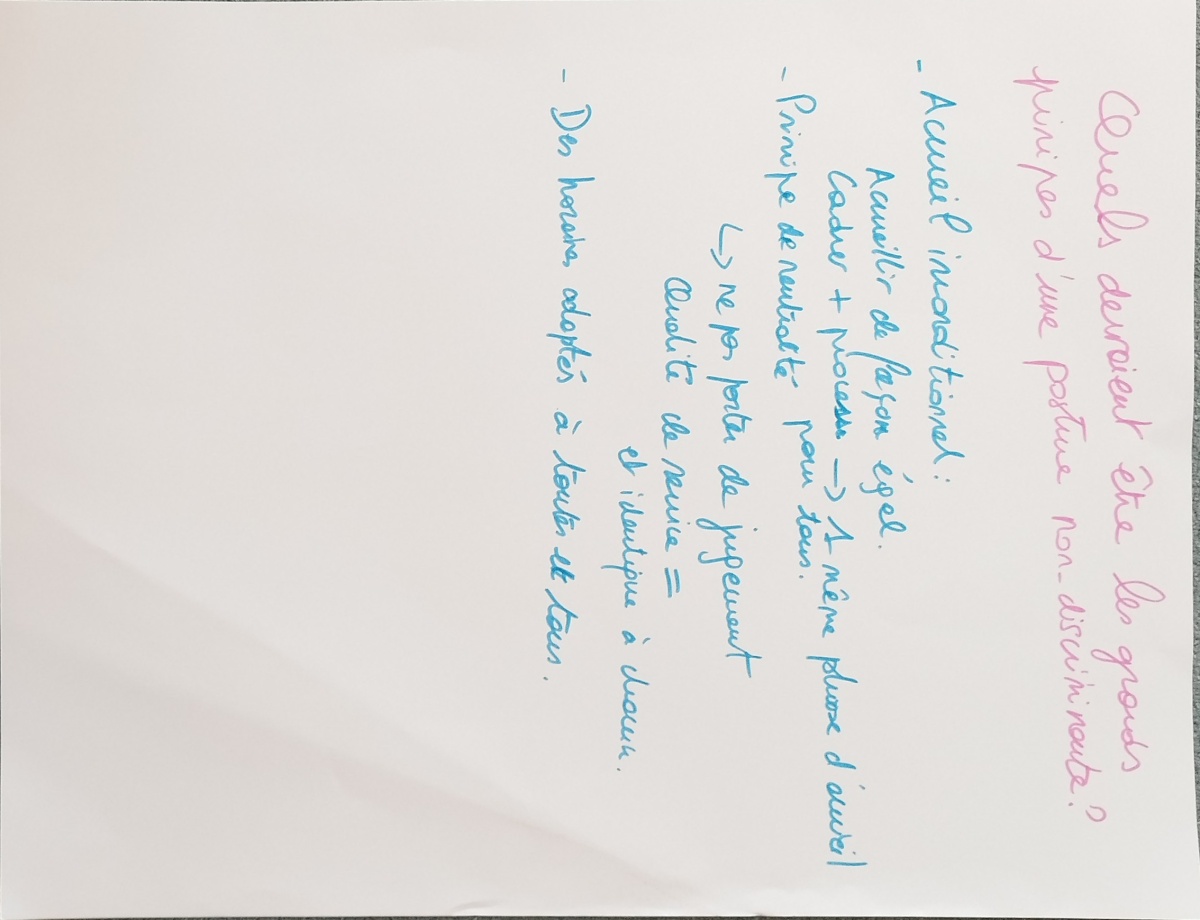 Quels devraient être les grands
principes d'une posture non-discriminante?
- Accueil inconditionnel :
Accueillir de façon égal.
Cadrer + processus → 1 même phrase d'accueil
pour tous.
- Principe de neutralité
↳ ne pas porter de jugement
Qualité de service =
et identique à chacun.
- Des horaires adaptés à toutes et tous.